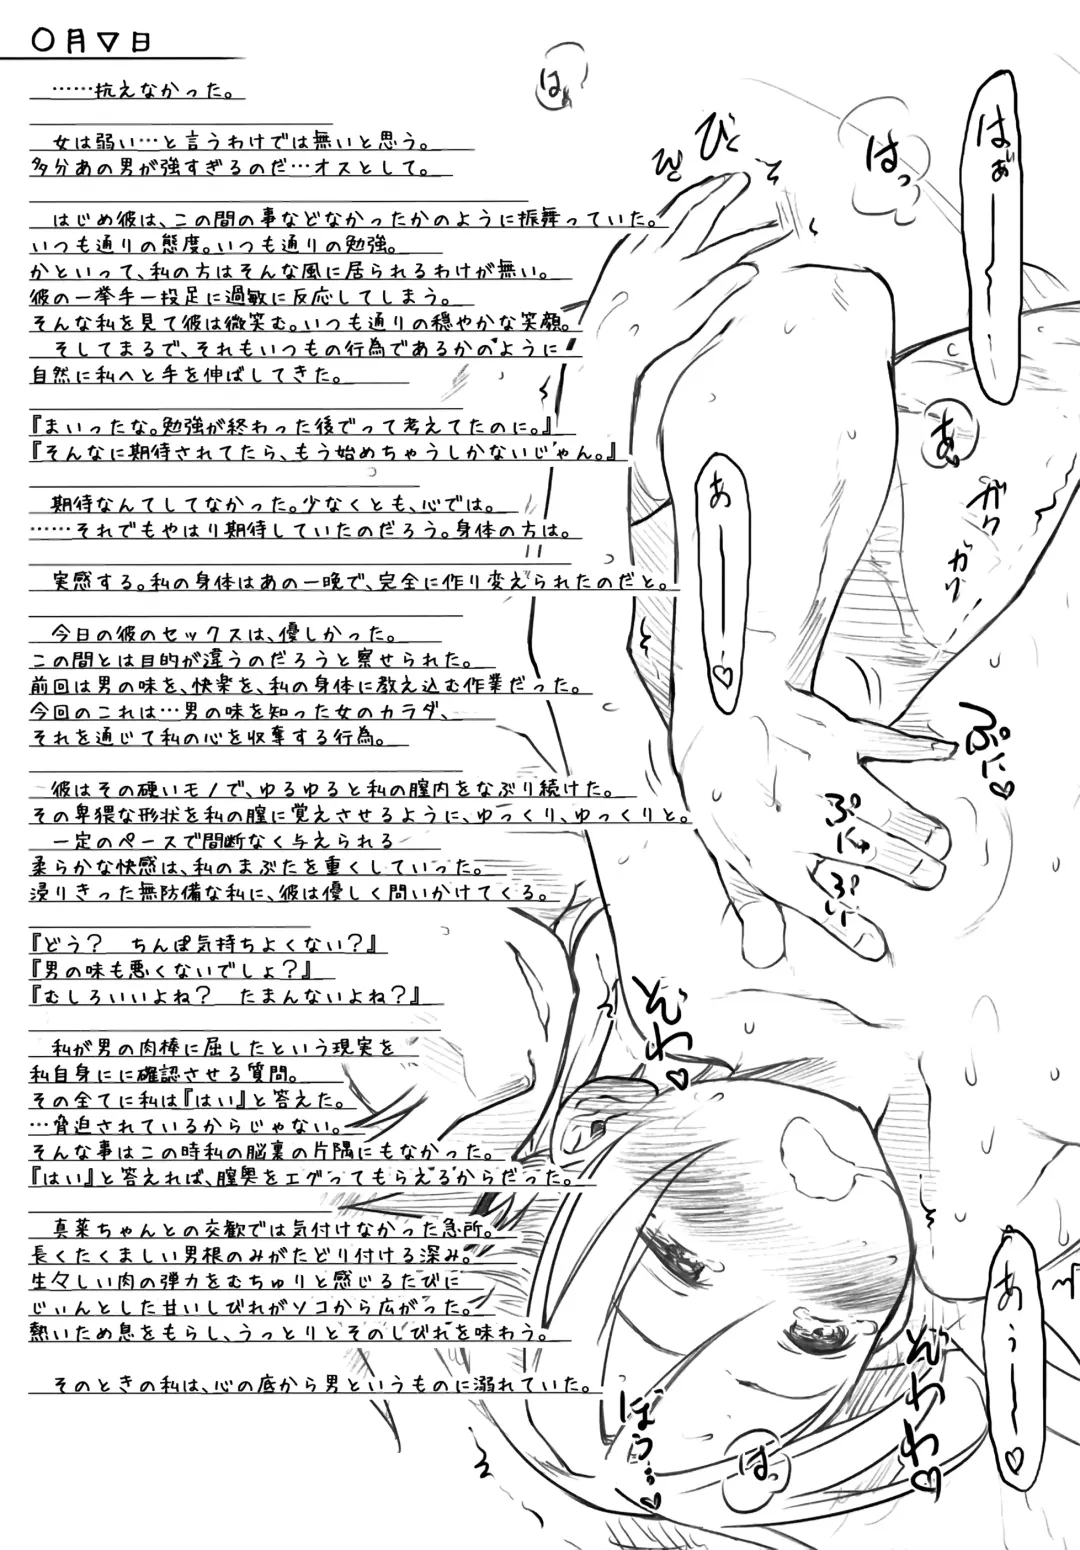 〇月▽日
……抗えなかった。
女は弱い…と言うわけでは無いと思う。
多分あの男が強すぎるのだ…オスとして。
はじめ彼は、この間の事などなかったかのように振舞っていた。
いつも通りの態度。いつも通りの勉強。
かといって、私の方はそんな風に居られるわけが無い。
彼の一挙手一投足に過敏に反応してしまう。
そんな私を見て彼は微笑む。いつも通りの穏やかな笑顔。
そしてまるで、それもいつもの行為であるかのように
自然に私へと手を伸ばしてきた。
『まいったな。勉強が終わった後でって考えてたのに。』
『そんなに期待されてたら、もう始めちゃうしかないじゃん。』
期待なんてしてなかった。少なくとも、心では。
……それでもやはり期待していたのだろう。身体の方は。
実感する。私の身体はあの一晩で、完全に作り変えられたのだと。
今日の彼のセックスは、優しかった。
この間とは目的が違うのだろうと察せられた。
前回は男の味を、快楽を、私の身体に教え込む作業だった。
今回のこれは…男の味を知った女のカラダ、
それを通じて私の心を収奪する行為。
彼はその硬いモノで、ゆるゆると私の膣内をなぶり続けた。
その卑猥な形状を私の膣に覚えさせるように、ゆっくり、ゆっくりと。
一定のペースで間断なく与えられる
柔らかな快感は、私のまぶたを重くしていった。
浸りきった無防備な私に、彼は優しく問いかけてくる。
『どう？　ちんぽ気持ちよくない？』
『男の味も悪くないでしょ？』
『むしろいいよね？　たまんないよね？』
私が男の肉棒に屈したという現実を
私自身にに確認させる質問。
その全てに私は『はい』と答えた。
…脅迫されているからじゃない。
そんな事はこの時私の脳裏の片隅にもなかった。
『はい』と答えれば、膣奥をエグってもらえるからだった。
真葉ちゃんとの交歓では気付けなかった急所。
長くたくましい男根のみがたどり付ける深み。
生々しい肉の弾力をむちゅりと感じるたびに
じぃんとした甘いしびれがソコから広がった。
熱いため息をもらし、うっとりとそのしびれを味わう。
そのときの私は、心の底から男というものに溺れていた。
はぁ
びくっ
はっ
はぁーーー
あっ
ガク
ガク
あーーー♡
ぷに♡
ぷに
ぷい
ぞわ♡
あぅー♡
ぞわわ♡
ほぅ…♡
はっ